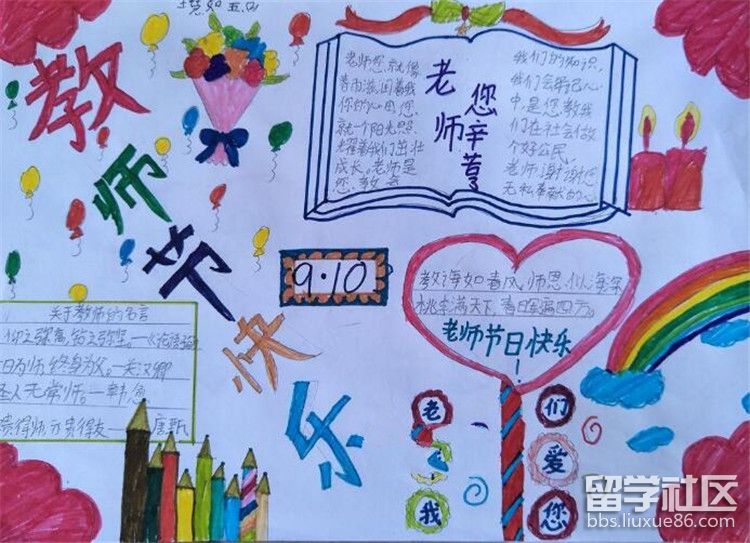 教师节快乐
老师您就像
春雨滋润着我
你的心田您
就一个阳光照
耀着我们茁壮
成长,老师是
您教会
老师
您辛苦了
我们的知识,
我们会牢记心
中是您教我
们在社会做
个好公民,
老师谢谢您
无私奉献的心
9·10
教诲如春风,师恩似海深
桃李满天下,春晖遍四方。
老师节日快乐
!
关于教师的名言
仰之弥高,钻之弥坚。—《论语》
日为师 终身为父。—关汉卿
圣人无常师。—韩愈
贵得师 亦贵得友——唐甄
老
我
们
爱
您
留学社区
bbs.liuxue86.com